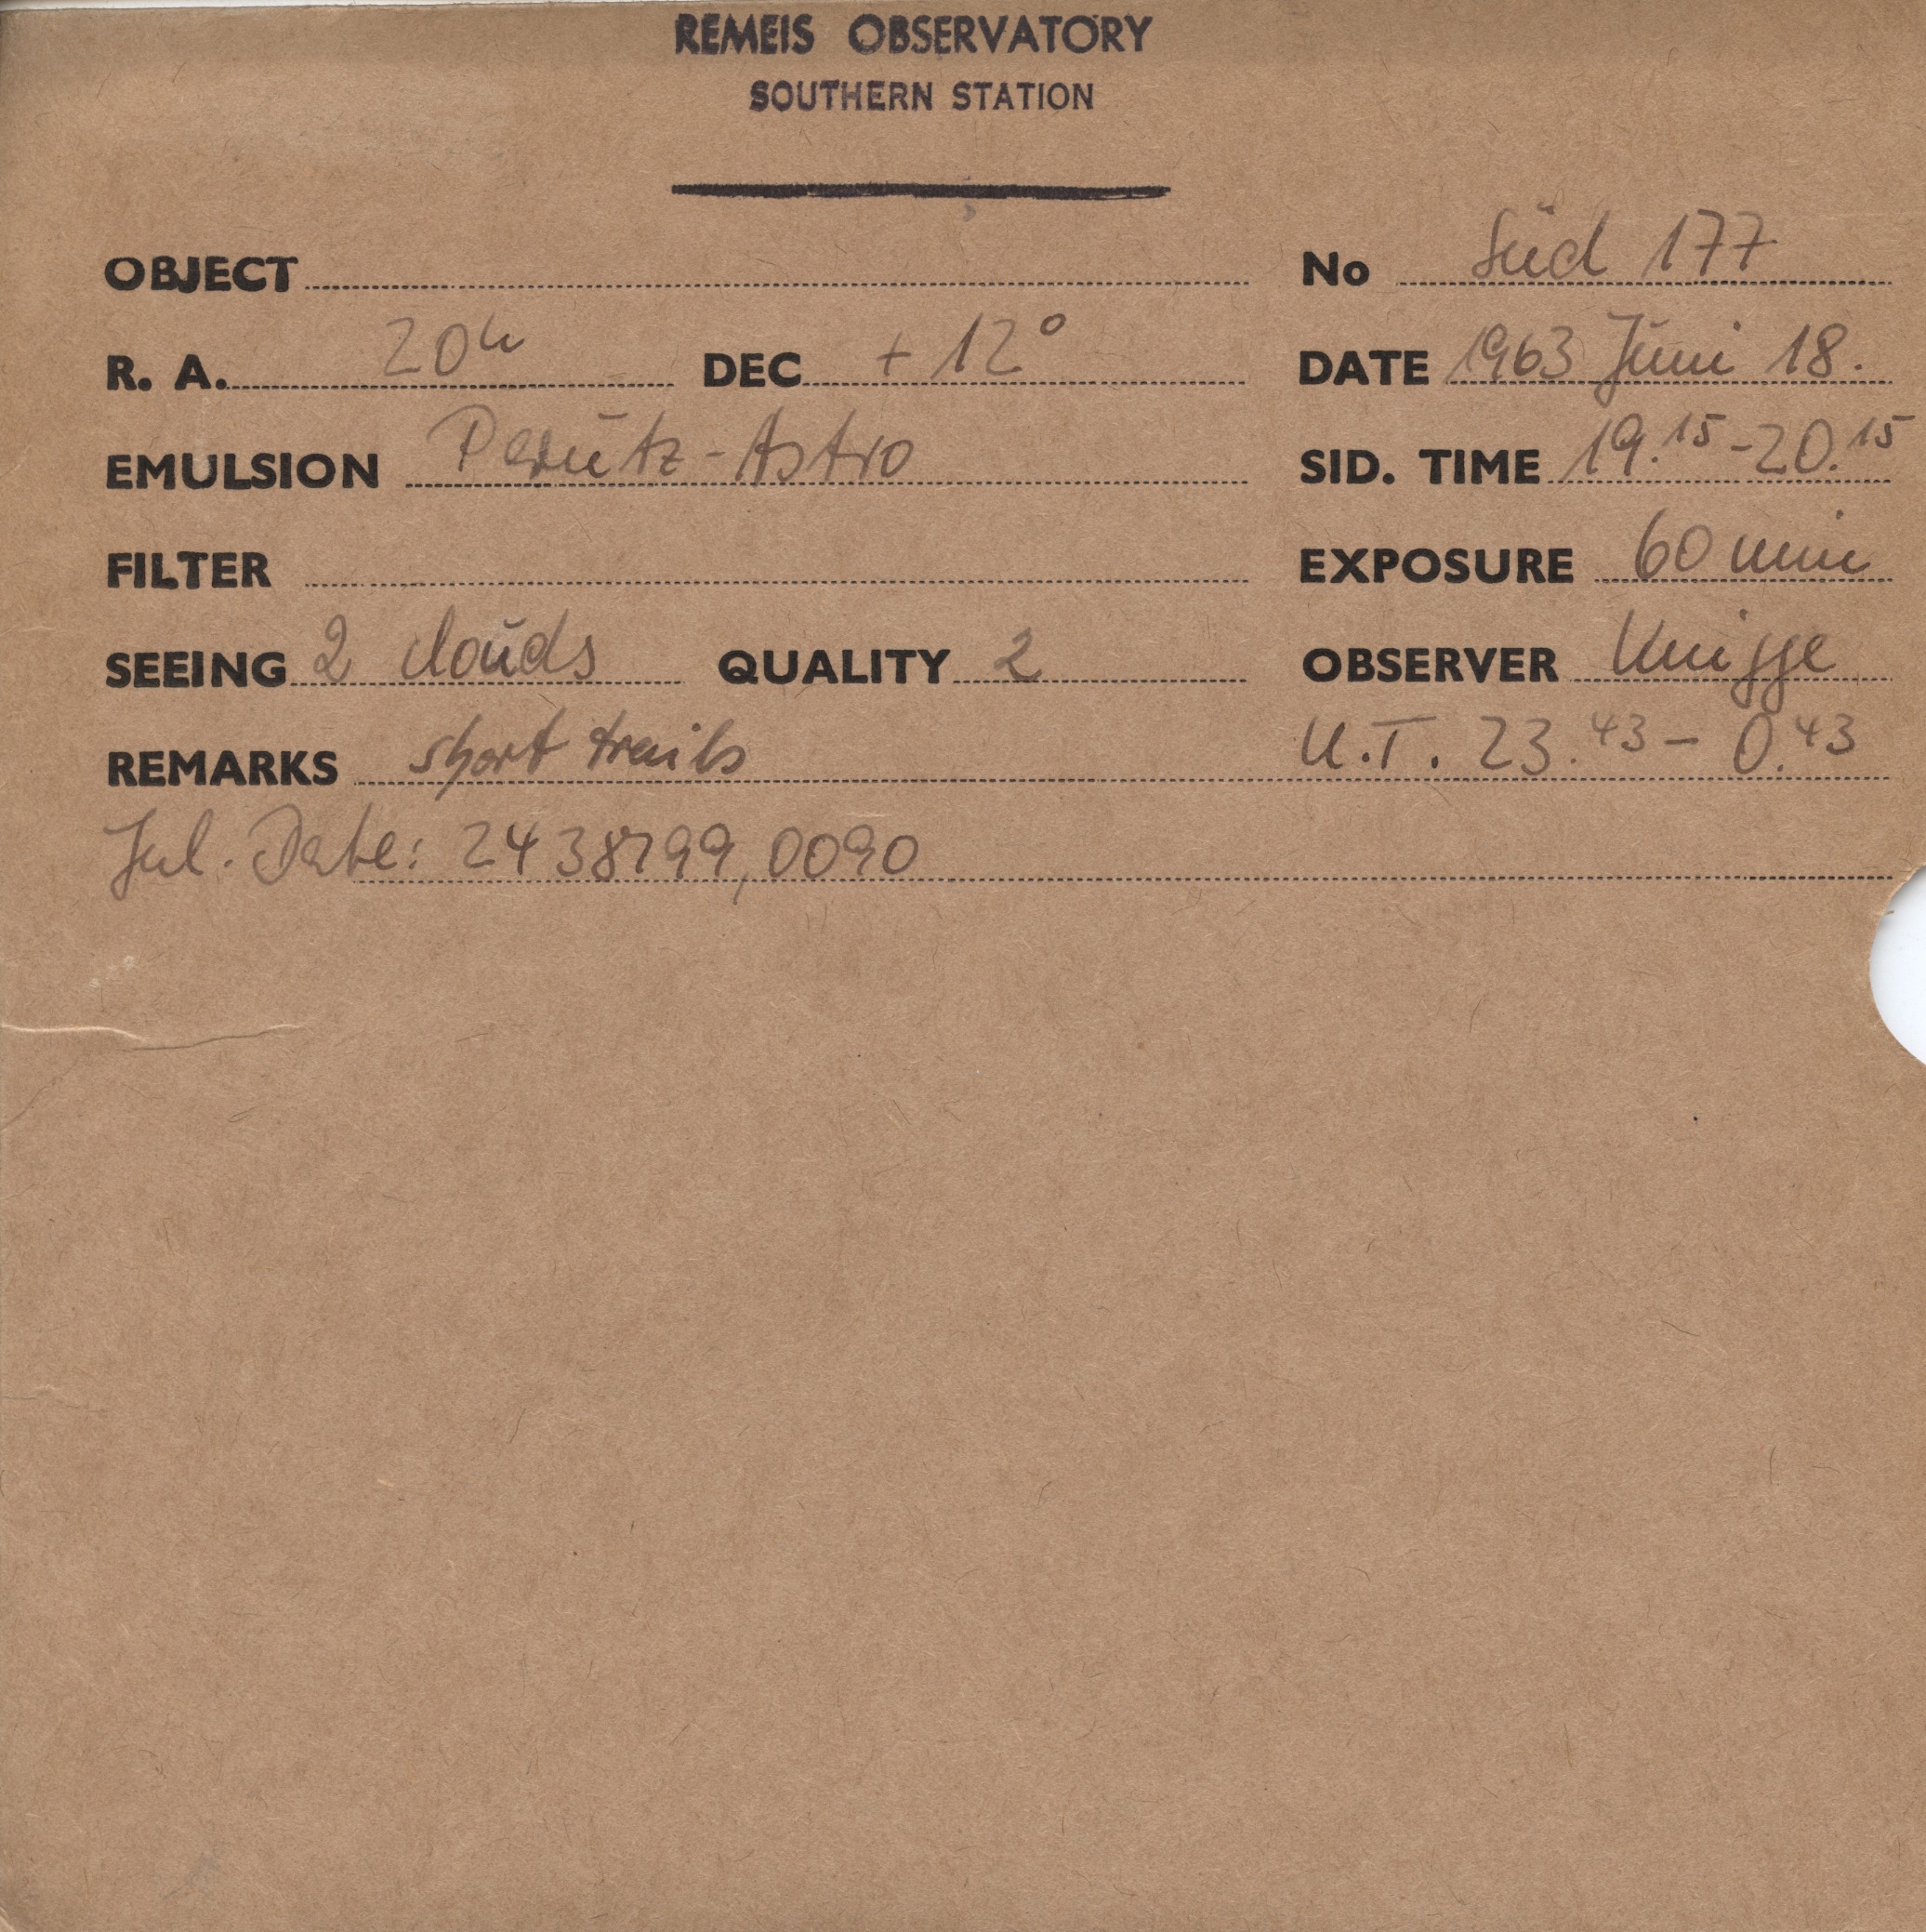 REMEIS OBSERVATORY
SOUTHERN STATION
OBJECT No Süd 177
R. A. 20h DEC + 12° DATE 1963 Juni 18.
EMULSION Perutz-Astro SID. TIME 19.15-20.15
FILTER EXPOSURE 60 min
SEEING 2 clouds QUALITY 2 OBSERVER Knigge
REMARKS short trails U.T. 23.43 - 0.43
Jul. Date: 2438199,0090